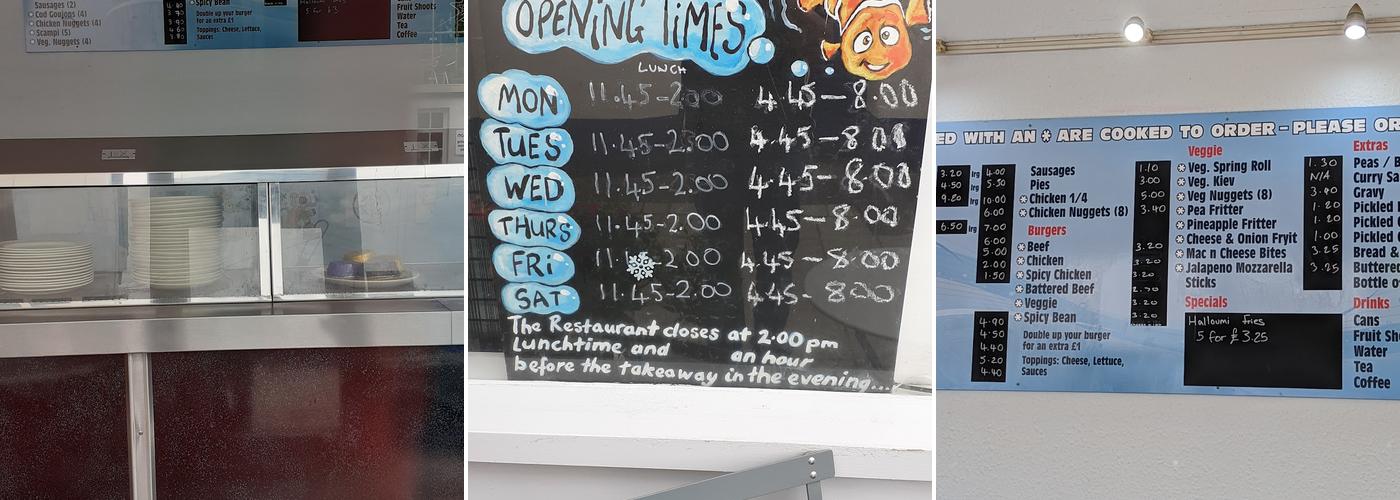 Sausages (2)
Cod Goujons (4)
Chicken Nuggets (4)
Scampi (5)
Veg. Nuggets (4)
Spicy Bean
Double up your burger
for an extra £1
Toppings: Cheese, Lettuce,
Sauces
Fruit Shoots
Water
Tea
Coffee
OPENING TIMES
LUNCH
MON 11.45-2.00 4.45-8.00
TUES 11.45-2.00 4.45-8.00
WED 11.45-2.00 4.45-8.00
THURS 11.45-2.00 4.45-8.00
FRI 2.00 4.45-8.00
SAT 11.45-2.00 4.45-8.00
The Restaurant closes at 2.00pm
Lunchtime and an hour
before the takeaway in the evening....
ED WITH AN * ARE COOKED TO ORDER - PLEASE OR
3.20 lrg 4.00
4.50 lrg 5.50
lrg 10.00
6.00
6.50 lrg 7.00
6.00
5.00
2.00
1.50
4.90
4.50
4.40
5.20
4.40
Sausages 1.10
Pies 3.00
Chicken 1/4 5.00
Chicken Nuggets (8) 3.40
Burgers
Beef 3.20
Chicken 3.20
Spicy Chicken 3.20
Battered Beef 2.70
Veggie 3.20
Spicy Bean 3.20
Double up your burger
for an extra £1
Toppings: Cheese, Lettuce,
Sauces
Veggie
Veg. Spring Roll 1.30
Veg. Kiev N/A
Veg Nuggets (8) 3.40
Pea Fritter 1.20
Pineapple Fritter 1.20
Cheese & Onion Fryit 1.00
Mac n Cheese Bites 3.25
Jalapeno Mozzarella 3.25
Sticks
Specials
Halloumi Fries
5 for £3.25
Extras
Peas / B
Curry Sa
Gravy
Pickled
Pickled
Pickled
Bread &
Buttere
Bottle o
Drinks
Cans
Fruit Sho
Water
Tea
Coffee